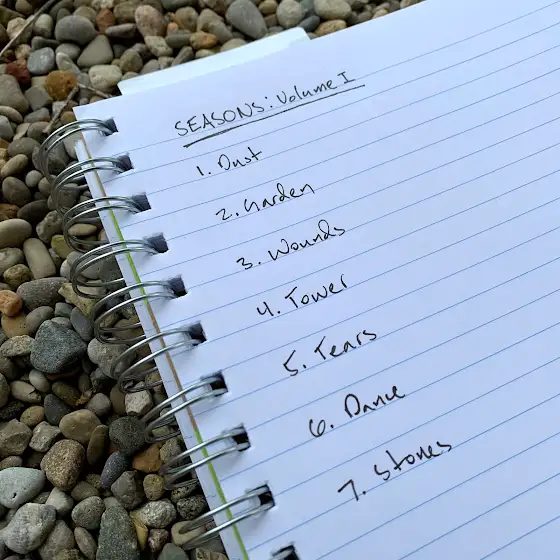 SEASONS: Volume I
1. Dust
2. Garden
3. Wounds
4. Tower
5. Tears
6. Dance
7. Stones